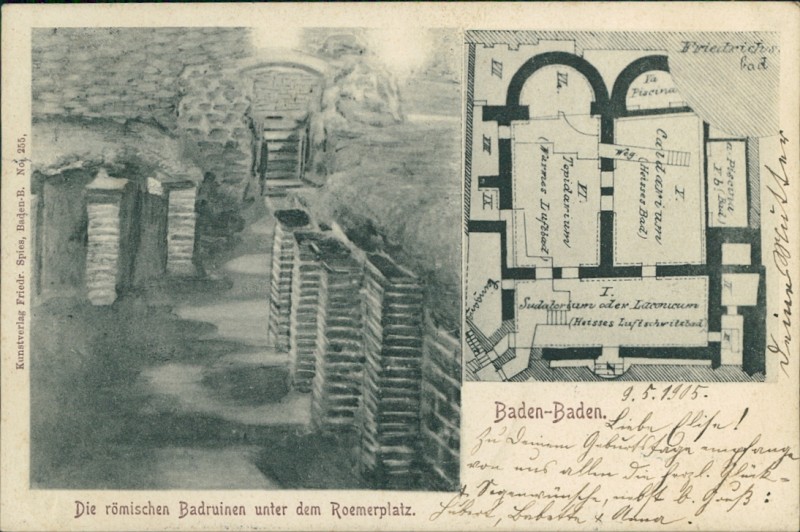 Kunstverlag Friedr. Spies, Baden-B. No. 255.
Friedrichs-
bad
VII
VIa.
Va
Piscina
VI.
Tepidarium
(Warmes Luftbad)
Weg
V.
Caldarium
(Heisses Bad)
Piscina
V b (Bad)
Eingang
I.
Sudatorium oder Laconicum
(Heisses Luftschwitzbad
II
N
Die römischen Badruinen unter dem Roemerplatz.
Baden-Baden.
9.5.1905.
Liebe Elise!
Zu Deinem Geburtstage empfange
von uns allen die herzl. Glück-
& Segenwünsche, nebst b. Gruß:
Hubert, Babette & Anna.
Deine Mutter